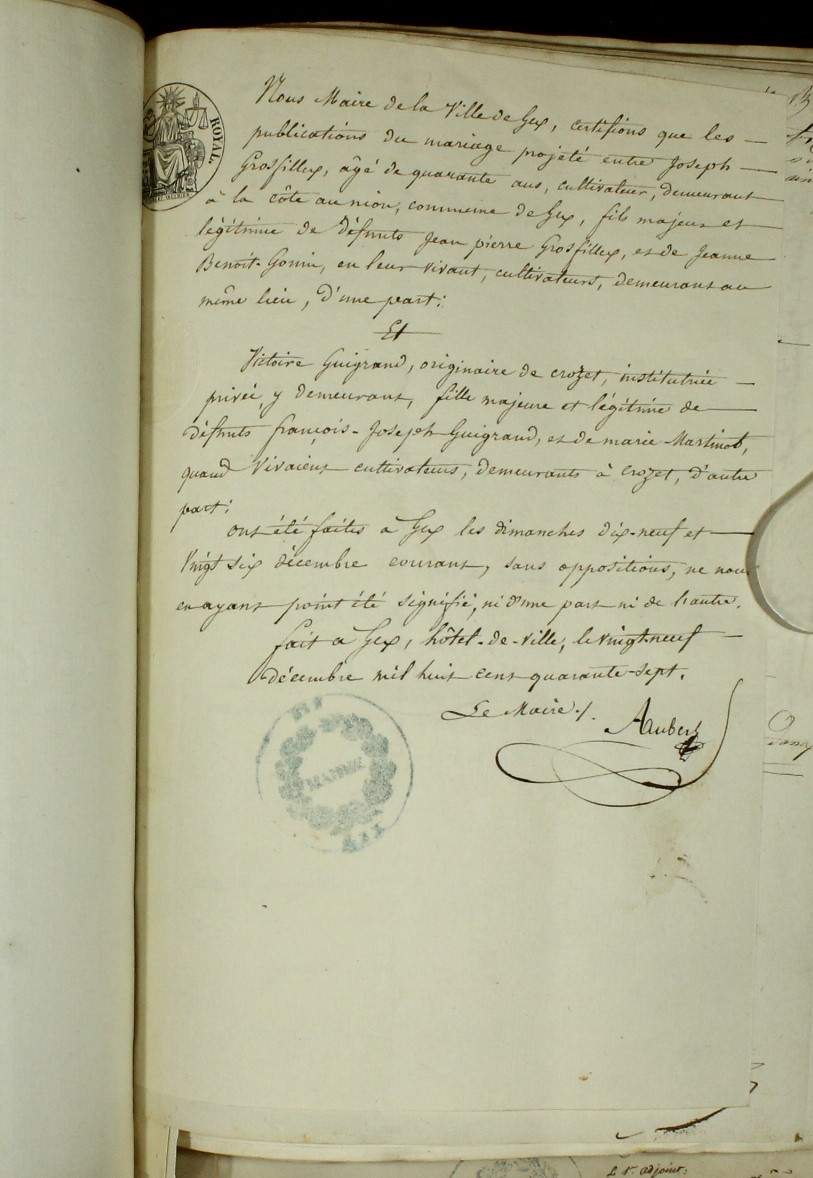 ROYAL.
Nous Maire de la Ville de Gex, certifions que les
publications du mariage projeté entre Joseph
Grosfillex, âgé de quarante ans, cultivateur, demeurant
à la côte au nion, commune de Gex, fils majeur et
légitime de défunts Jean pierre Grosfillex, et de Jeanne
Benoit-Gonin, en leur vivant, cultivateurs, demeurant au
même lieu, d'une part;
Et
Victoire Guigrand, originaire de crozet, institutrice
privée, y demeurant, fille majeure et légitime de
défunts françois-Joseph Guigrand, et de marie Martinod,
quand vivaient cultivateurs, demeurants à crozet, d'autre
part;
ont été faites à Gex les dimanches dix-neuf et
vingt six décembre courant, sans oppositions, ne nous
en ayant point été signifié, ni d'une part ni de l'autre.
fait à Gex, hôtel-de-ville, le vingt-neuf
décembre mil huit cent quarante-sept.
Le Maire /.
Aubert
MAIRIE
L'adjoint: